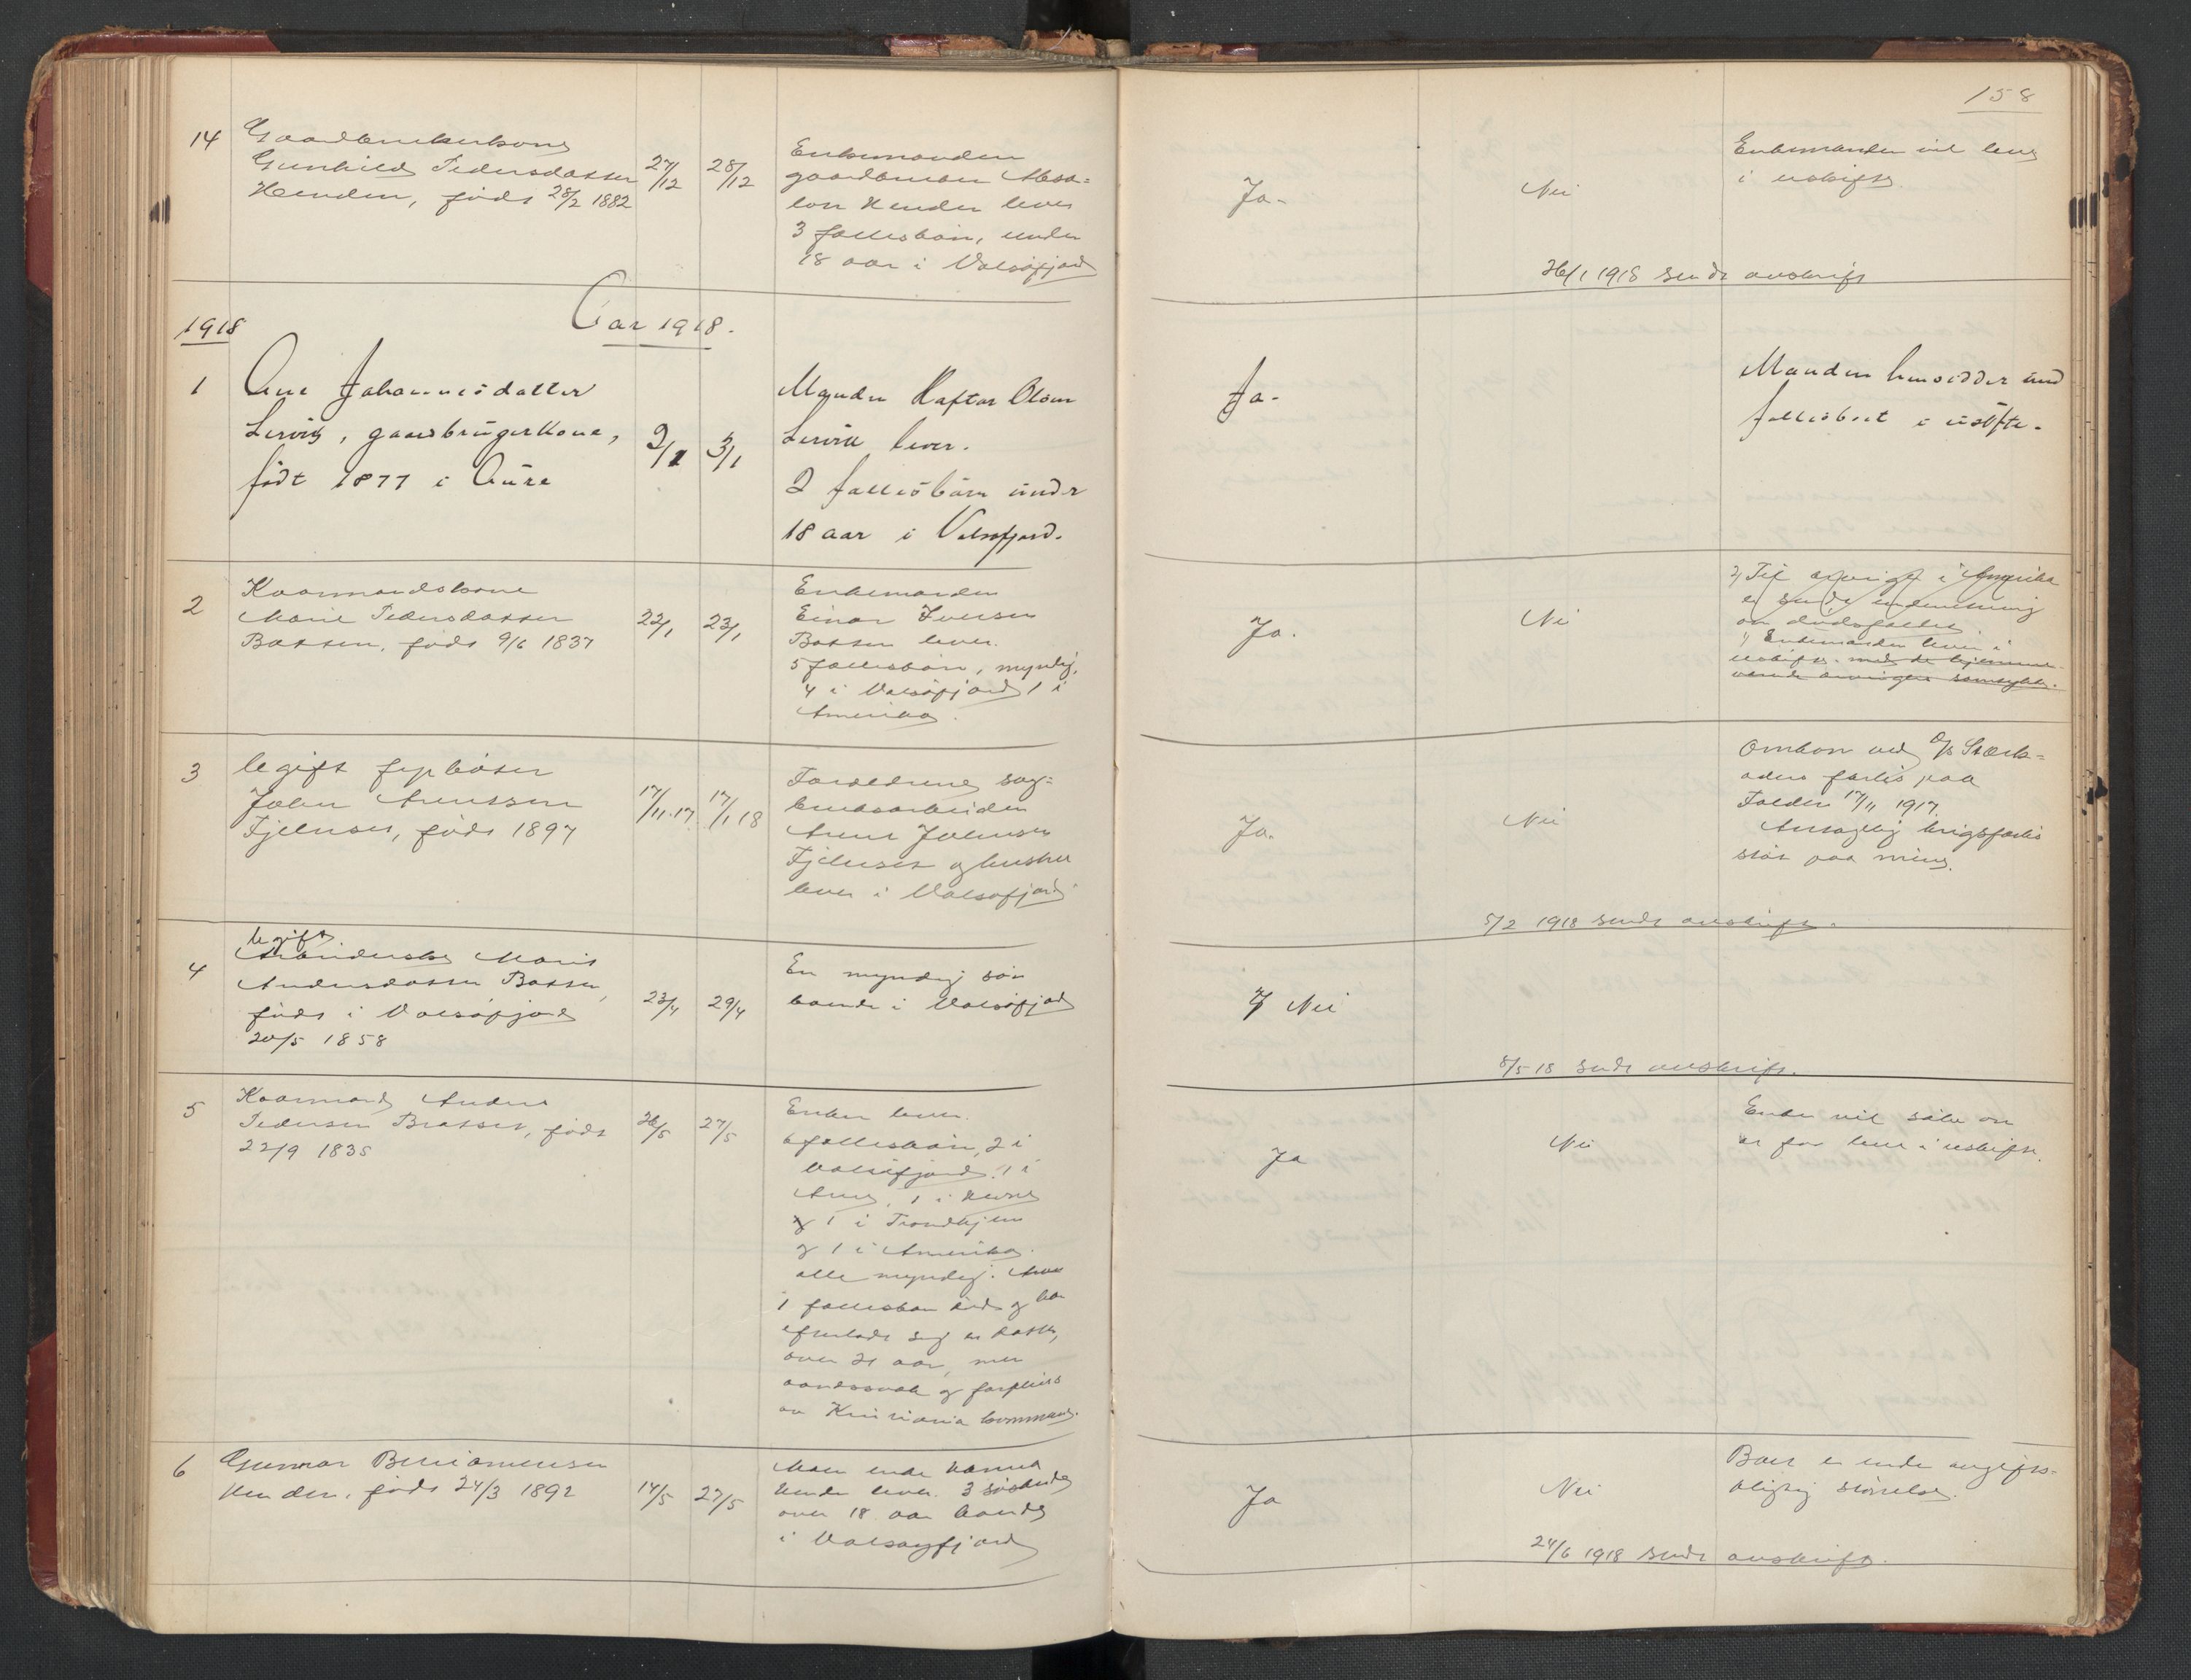 158
14
Gaardbrukerkone
Gunhild Pedersdatter
Henden, født 28/2 1882
27/12
28/12
Enkemanden
gaardbruker Absa=
lon Henden lever
3 fællesbørn, under
18 aar i Valsøfjord
Ja.
Nei
Enkemanden vil leve
i uskifte
26/1 1918 sendt avskrift
1918
Aar 1918.
1
Ane Johannesdatter
Lervik, gaardbrugerkone,
født 1877 i Aure
2/1
3/1
Manden Haftor Olsen
Lervik lever.
2 fællesbørn under
18 aar i Valsøfjord.
Ja.
Manden hensidder med
fællesboet i uskifte.
2
Kaarmandskone
Marie Pedersdatter
Botten, født 9/6 1837
22/1
23/1
Enkemanden
Einar Iversen
Botten lever.
5 fællesbørn, myndig,
4 i Valsøfjord 1 i
Amerika.
Ja.
Nei
2) Til arving i Amerika
er sendt underretning
om dødsfallet.
1) Enkemanden lever i
uskifte. med de hjemme-
værende arvingers samtykke.
3
Ugift fyrbøter
John Arntsen
Fjelnset, født 1897
17/11.17
17/1 18
Forældrene sag=
bruksarbeider
Arnt Johnsen
Fjelnset og hustru
lever i Valsøfjord
Ja.
Nei
Omkom ved D/S Stærk=
odders forlis paa
Folden 17/11 1917.
Antagelig krigsforlis
støt paa mine.
5/2 1918 sendt avskrift.
4
Ugift
Marit
Andersdatter Botten,
født i Valsøfjord
20/5 1858
23/4
29/4
En myndig søn
boende i Valsøfjord
Nei
8/5 18 sendt avskrift.
5
Kaarmand Anders
Pedersen Bratset, født
22/9 1835
26/5
27/5
Enken lever.
6 fællesbørn, 2 i
Valsøfjord, 1 i
Aure, 1 i Hevne
og 1 i Trondhjem
og 1 i Amerika.
alle myndig.
1 fællesbarn død og har
efterladt sig en datter,
over 21 aar, men
aandssvak og forpleies
av Kristiania kommune.
Ja
Nei
Enken vil søke om
at faa leve i uskifte.
6
Gunnar Beniamensen
Henden, født 24/3 1892
14/5
27/5
Mor enke Hanna
Henden lever. 3 søskende
over 18 aar boende
i Valsøyfjord
Ja
Nei
Boet er under avgifts-
pligtig størrelse.
24/6 1918 sendt avskrift.